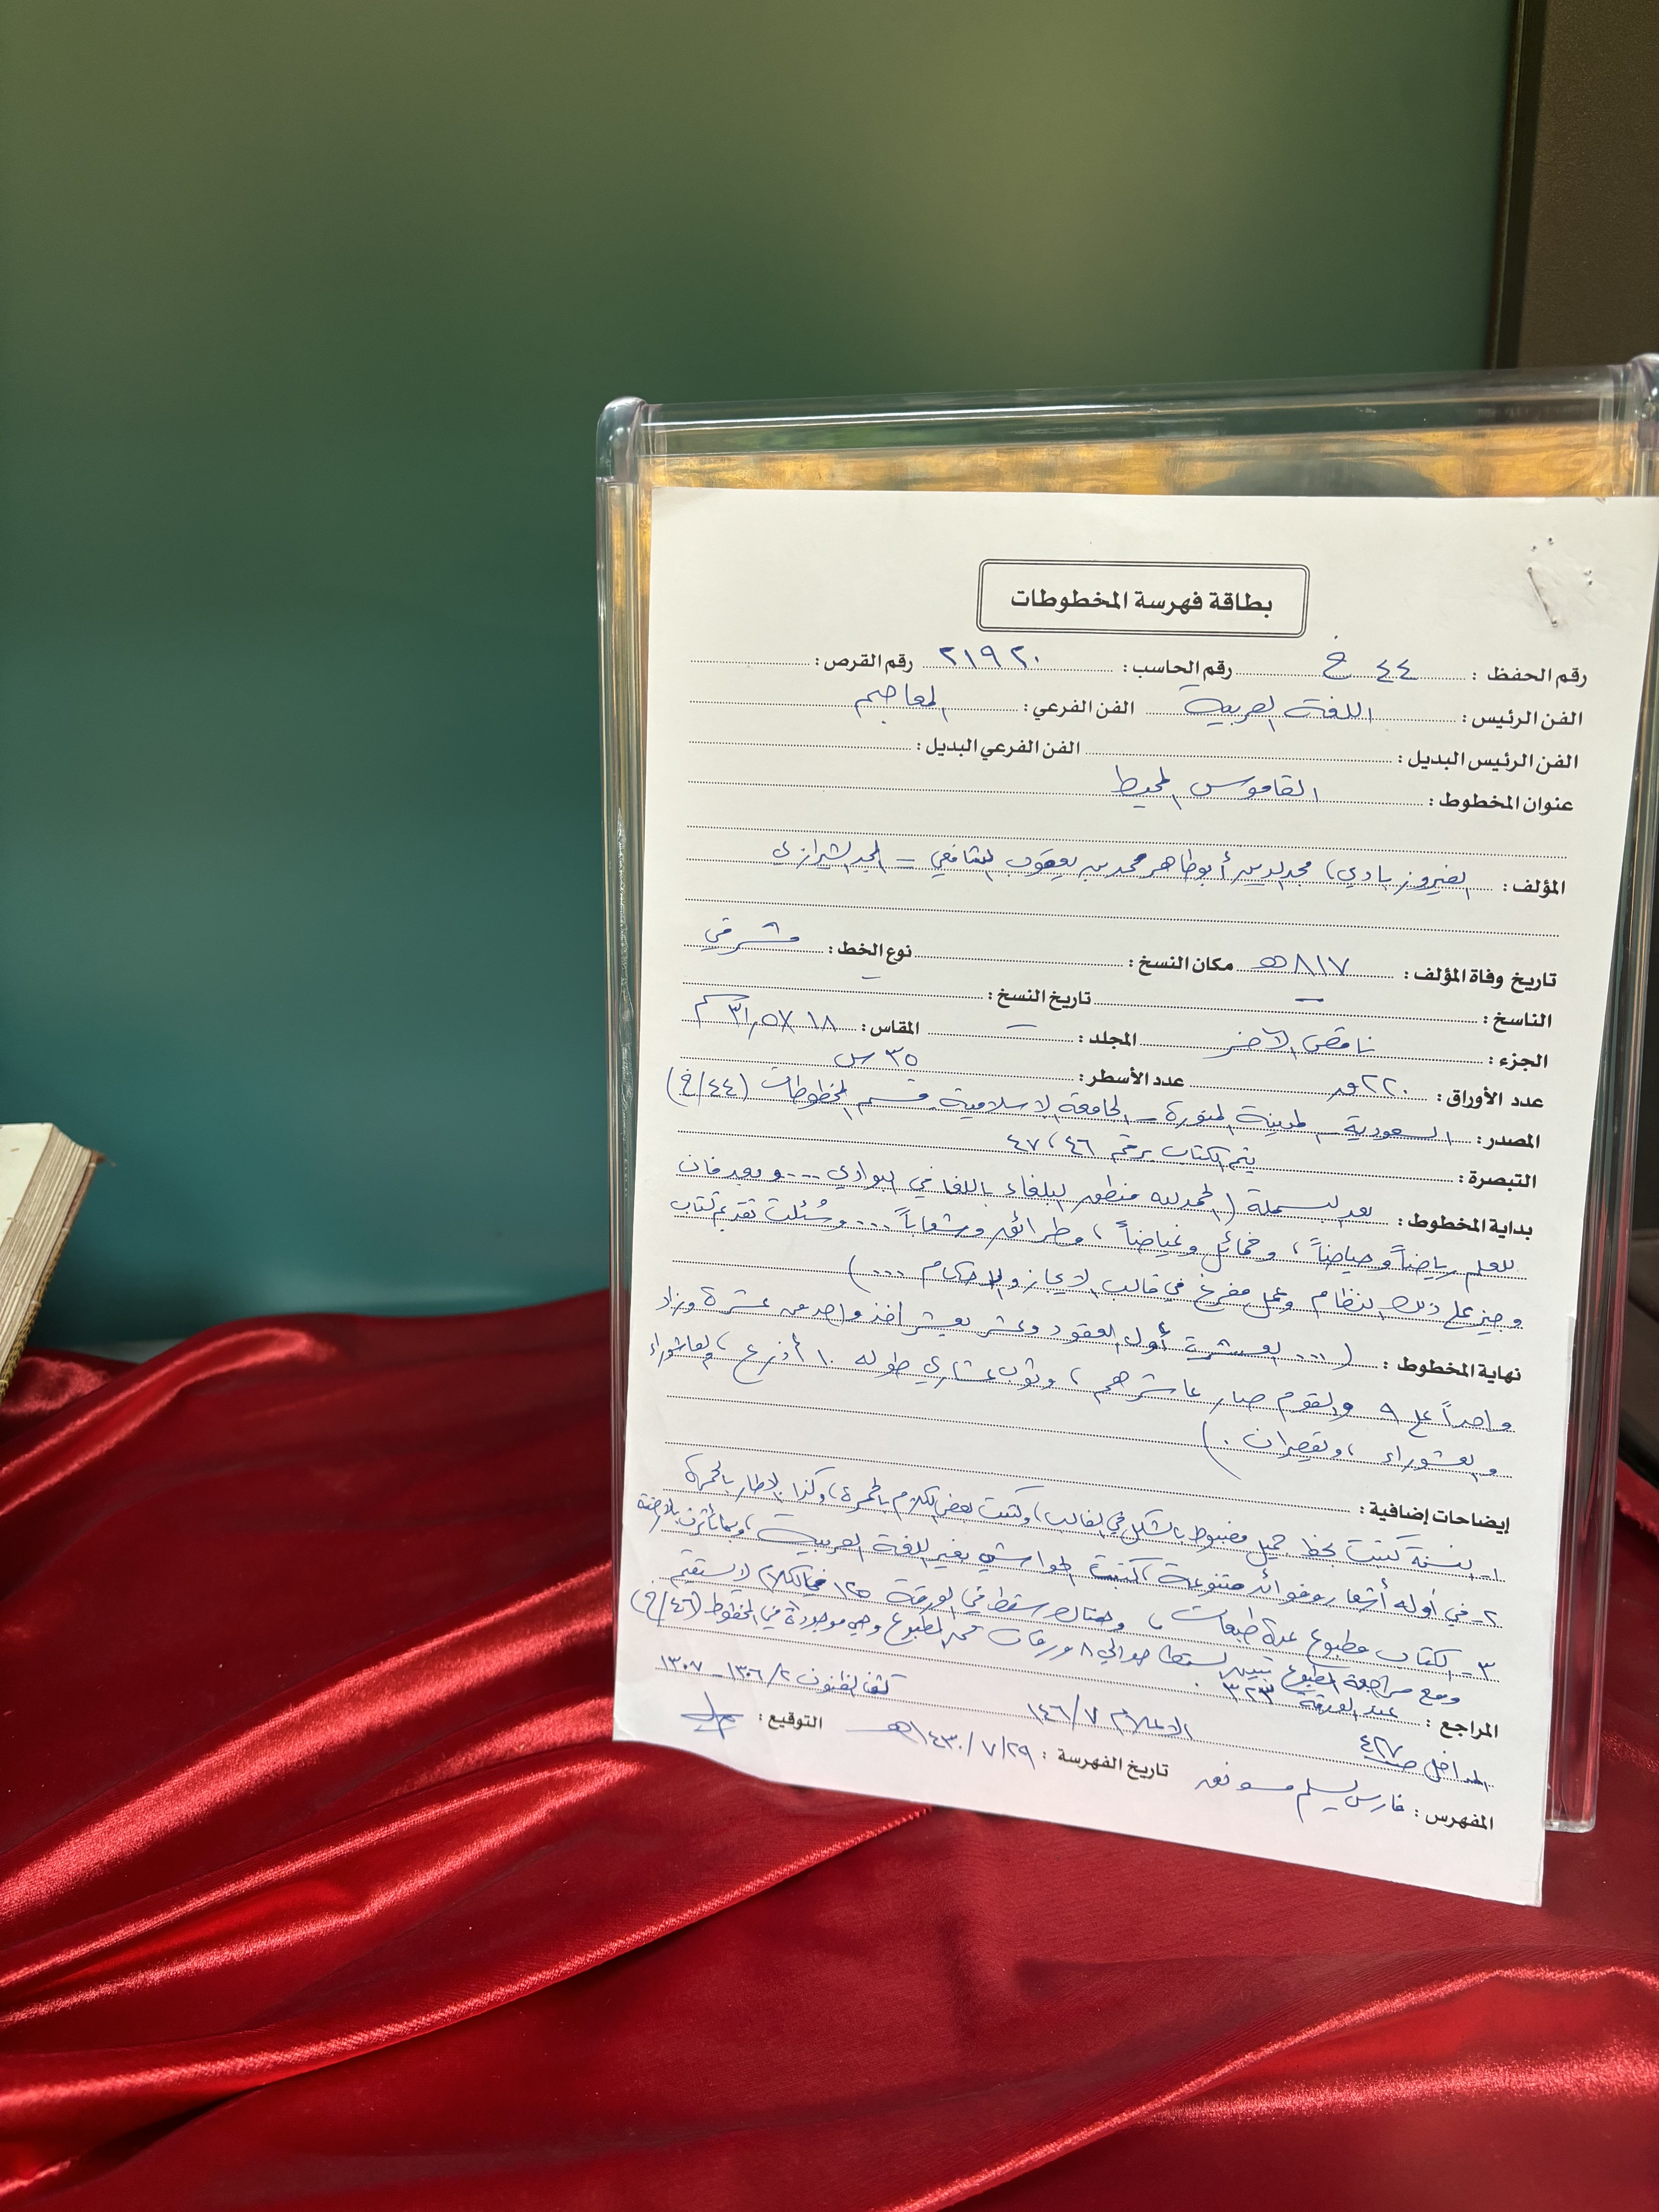 بطاقة فهرسة المخطوطات
رقم الحفظ : ٤٤ خ رقم الحاسب : ٢١٩٢٠ رقم القرص :
الفن الرئيس : اللغة العربية الفن الفرعي : المعاجم
الفن الرئيس البديل : الفن الفرعي البديل :
عنوان المخطوط : القاموس المحيط
المؤلف : الفيروزبادي، مجد الدين أبو طاهر محمد بن يعقوب الشافعي – المجد الشيرازي
تاريخ وفاة المؤلف : ٨١٧هـ مكان النسخ : نوع الخط : مشرقي
الناسخ : – تاريخ النسخ :
الجزء : ناقص الآخر المجلد : – المقاس : ١٨ × ٣١,٥ سم
عدد الأوراق : ٢٢٠ ور عدد الأسطر : ٣٥ س
المصدر : السعودية – المدينة المنورة – الجامعة الإسلامية قسم المخطوطات (٤٤/خ)
التبصرة : يتم الكتاب برقم ٤٦، ٤٧
بداية المخطوط : بعد البسملة (الحمد لله منطق البلغاء باللغا في البوادي ... وبعد فإن
للعلم رياضاً وحياضاً، وخمائل وغياضاً، وطرائق وشعاباً .... وسُئلت تقديم كتاب
وجيز على ذلك النظام وعمل مفرغ في قالب الايجاز والاحكام ...)
نهاية المخطوط : (... العشرة أول العقود وعشر يعشر أخذ واحد من عشرة وزاد
واحداً على ٩ والقوم صار عاشرهم، وثوب عشاري طوله ١٠ أذرع، والعاشوراء
والعشوراء، ويقصران .)
إيضاحات إضافية :
١- النسخة كتبت بخط جميل مضبوط بالشكل في الغالب، وكتبت بعض الكلام بالحمرة، وكذا الإطار بالحمرة
٢- في أوله أشعار وفوائد متنوعة، كتبت حواشي بغير اللغة العربية، وبها تأثر بالأرضة
٣- الكتاب مطبوع عدة طبعات، وهناك سقط في الورقة ١٢٥ فالكلام لا يستقيم
ومع مراجعة المطبوع تبين السقط حوالي ٨ ورقات من المطبوع وهي موجودة في المخطوط (٤٦/خ)
عند الورقة ٣٢٣ .
المراجع : كشف الظنون ٢/ ١٣٠٦ – ١٣٠٧
المداخل ص ٤٢٧ الاعلام ٧/ ١٤٦
المفهرس : فارس تاريخ الفهرسة : ٢٩/ ٧/ ١٤٣٠هـ التوقيع :